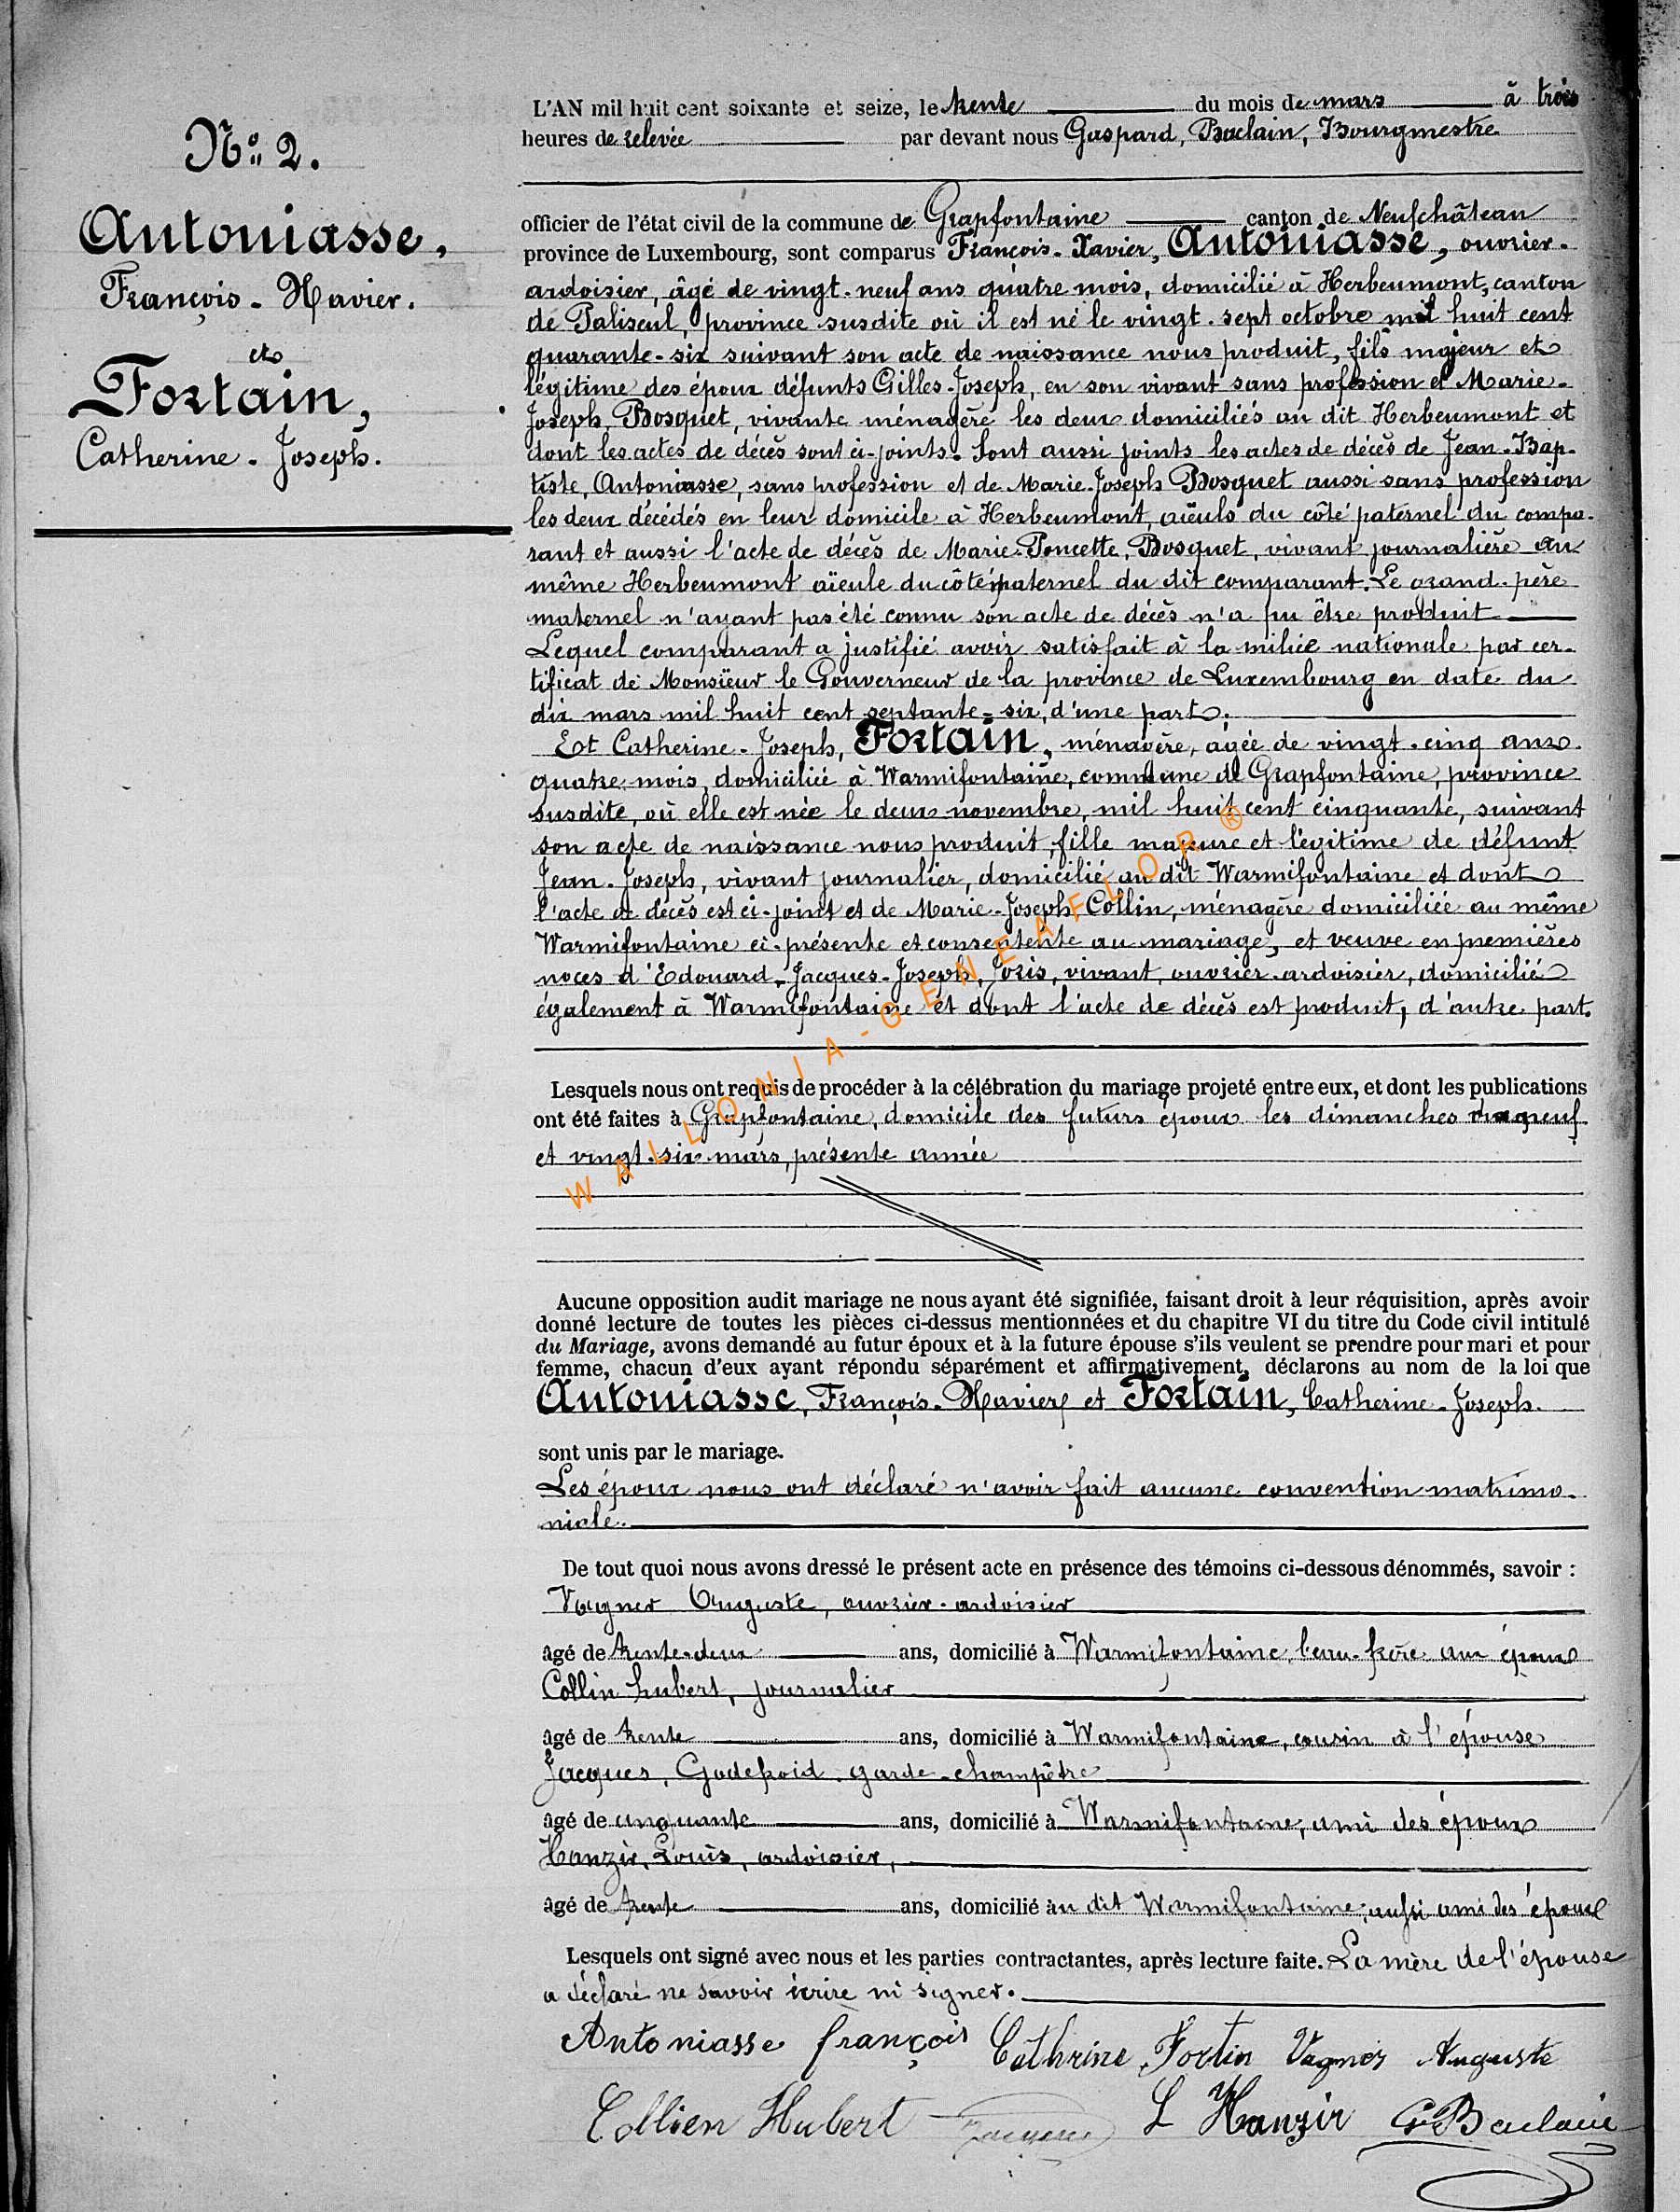 N° 2.
Antoniasse,
François-Xavier.
et
Fortain,
Catherine-Joseph.
L'AN mil huit cent soixante et seize, le trente du mois de mars à trois
heures de relevée par devant nous Gaspard, Baclain, Bourgmestre
officier de l'état civil de la commune de Grapfontaine canton de Neufchâteau
province de Luxembourg, sont comparus François-Xavier, Antoniasse, ouvrier-
ardoisier, âgé de vingt-neuf ans quatre mois, domicilié à Herbeumont, canton
de Paliseul, province susdite où il est né le vingt-sept octobre mil huit cent
quarante-six suivant son acte de naissance nous produit, fils majeur et
légitime des époux défunts Gilles-Joseph, en son vivant sans profession et Marie-
Joseph, Bosquet, vivante ménagère les deux domiciliés au dit Herbeumont et
dont les actes de décès sont ci-joints. Sont aussi joints les actes de décès de Jean-Bap-
tiste, Antoniasse, sans profession et de Marie-Joseph Bosquet aussi sans profession
les deux décédés en leur domicile à Herbeumont, aïeuls du côté paternel du compa-
rant et aussi l'acte de décès de Marie-Poncette, Bosquet, vivant journalière au
même Herbeumont aïeule du côté paternel du dit comparant. Le grand-père
maternel n'ayant pas été connu son acte de décès n'a pu être produit
Lequel comparant a justifié avoir satisfait à la milice nationale par cer-
tificat de Monsieur le Gouverneur de la province de Luxembourg en date du
dix mars mil huit cent septante-six, d'une part;
Et Catherine-Joseph, Fortain, ménagère, âgée de vingt-cinq ans
quatre mois, domiciliée à Warmifontaine, commune de Grapfontaine, province
susdite, où elle est née le deux novembre, mil huit cent cinquante, suivant
son acte de naissance nous produit, fille majeure et légitime de défunt
Jean-Joseph, vivant journalier, domicilié au dit Warmifontaine et dont
l'acte de décès est ci-joint et de Marie-Joseph, Collin, ménagère domiciliée au même
Warmifontaine ci-présente et consentente au mariage, et veuve en premières
noces d'Edouard-Jacques-Joseph, Joris, vivant, ouvrier-ardoisier, domicilié
également à Warmifontaine et dont l'acte de décès est produit, d'autre part.
Lesquels nous ont requis de procéder à la célébration du mariage projeté entre eux, et dont les publications
ont été faites à Grapfontaine, domicile des futurs époux les dimanches dix-neuf
et vingt-six mars, présente année
Aucune opposition audit mariage ne nous ayant été signifiée, faisant droit à leur réquisition, après avoir
donné lecture de toutes les pièces ci-dessus mentionnées et du chapitre VI du titre du Code civil intitulé
du Mariage, avons demandé au futur époux et à la future épouse s'ils veulent se prendre pour mari et pour
femme, chacun d'eux ayant répondu séparément et affirmativement, déclarons au nom de la loi que
Antoniasse, François-Xavier, et Fortain, Catherine-Joseph.
sont unis par le mariage.
Les époux nous ont déclaré n'avoir fait aucune convention matrimo-
niale.
De tout quoi nous avons dressé le présent acte en présence des témoins ci-dessous dénommés, savoir :
Vagner Auguste, ouvrier-ardoisier
âgé de trente-deux ans, domicilié à Warmifontaine, beau-frère aux époux
Collin hubert, journalier
âgé de trente ans, domicilié à Warmifontaine, cousin à l'épouse
Jacques, Godefroid garde-champêtre
âgé de cinquante ans, domicilié à Warmifontaine, ami des époux
Hanzir, Louis, ardoisier,
âgé de trente ans, domicilié au dit Warmifontaine, aussi ami des époux
Lesquels ont signé avec nous et les parties contractantes, après lecture faite. La mère de l'épouse
a déclaré ne savoir écrire ni signer.
Antoniasse françois Cathrine Fortin Vagner Auguste
Collien Hubert L Hanzir G Baclain
WALLONIA-GENEAFLOR®